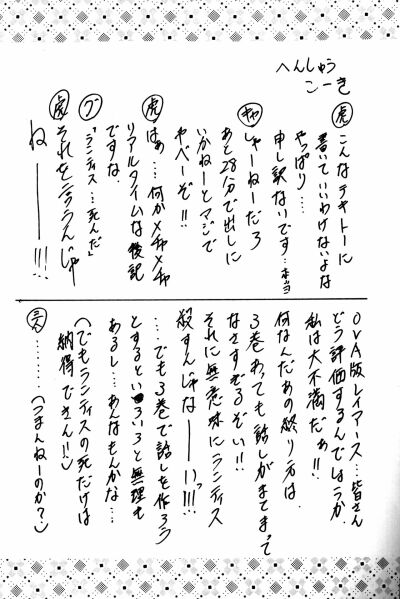 へんしゅう
こーき
虎 こんなテキトーに
書いていいわけないよな
やっぱり…
申し訳ないです…本当
しゃーねーだろ
あと28分で出しに
いかねーとマジで
やべーぞ!!
虎 はぁ…何かメチャメチャ
リアルタイムな後記
ですな
グ 「ランティス…死んだ」
虎 それを言うんじゃ
ねーーー!!!
OVA版レイアース…皆さん
どう評価するんでしょうか
私は大不満だぁ!!
何なんだあの終り方は
3巻わっても話しがまてまて
なさすぎるぞい!!
それに無意味にランティス
殺すんじゃなーいっ!!!
…でも3巻で話しを作ろう
とするといろいろと無理も
あるし…あんなもんかな…
(でもランティスの死だけは
納得できん!!)
………(つまんねーのか?)